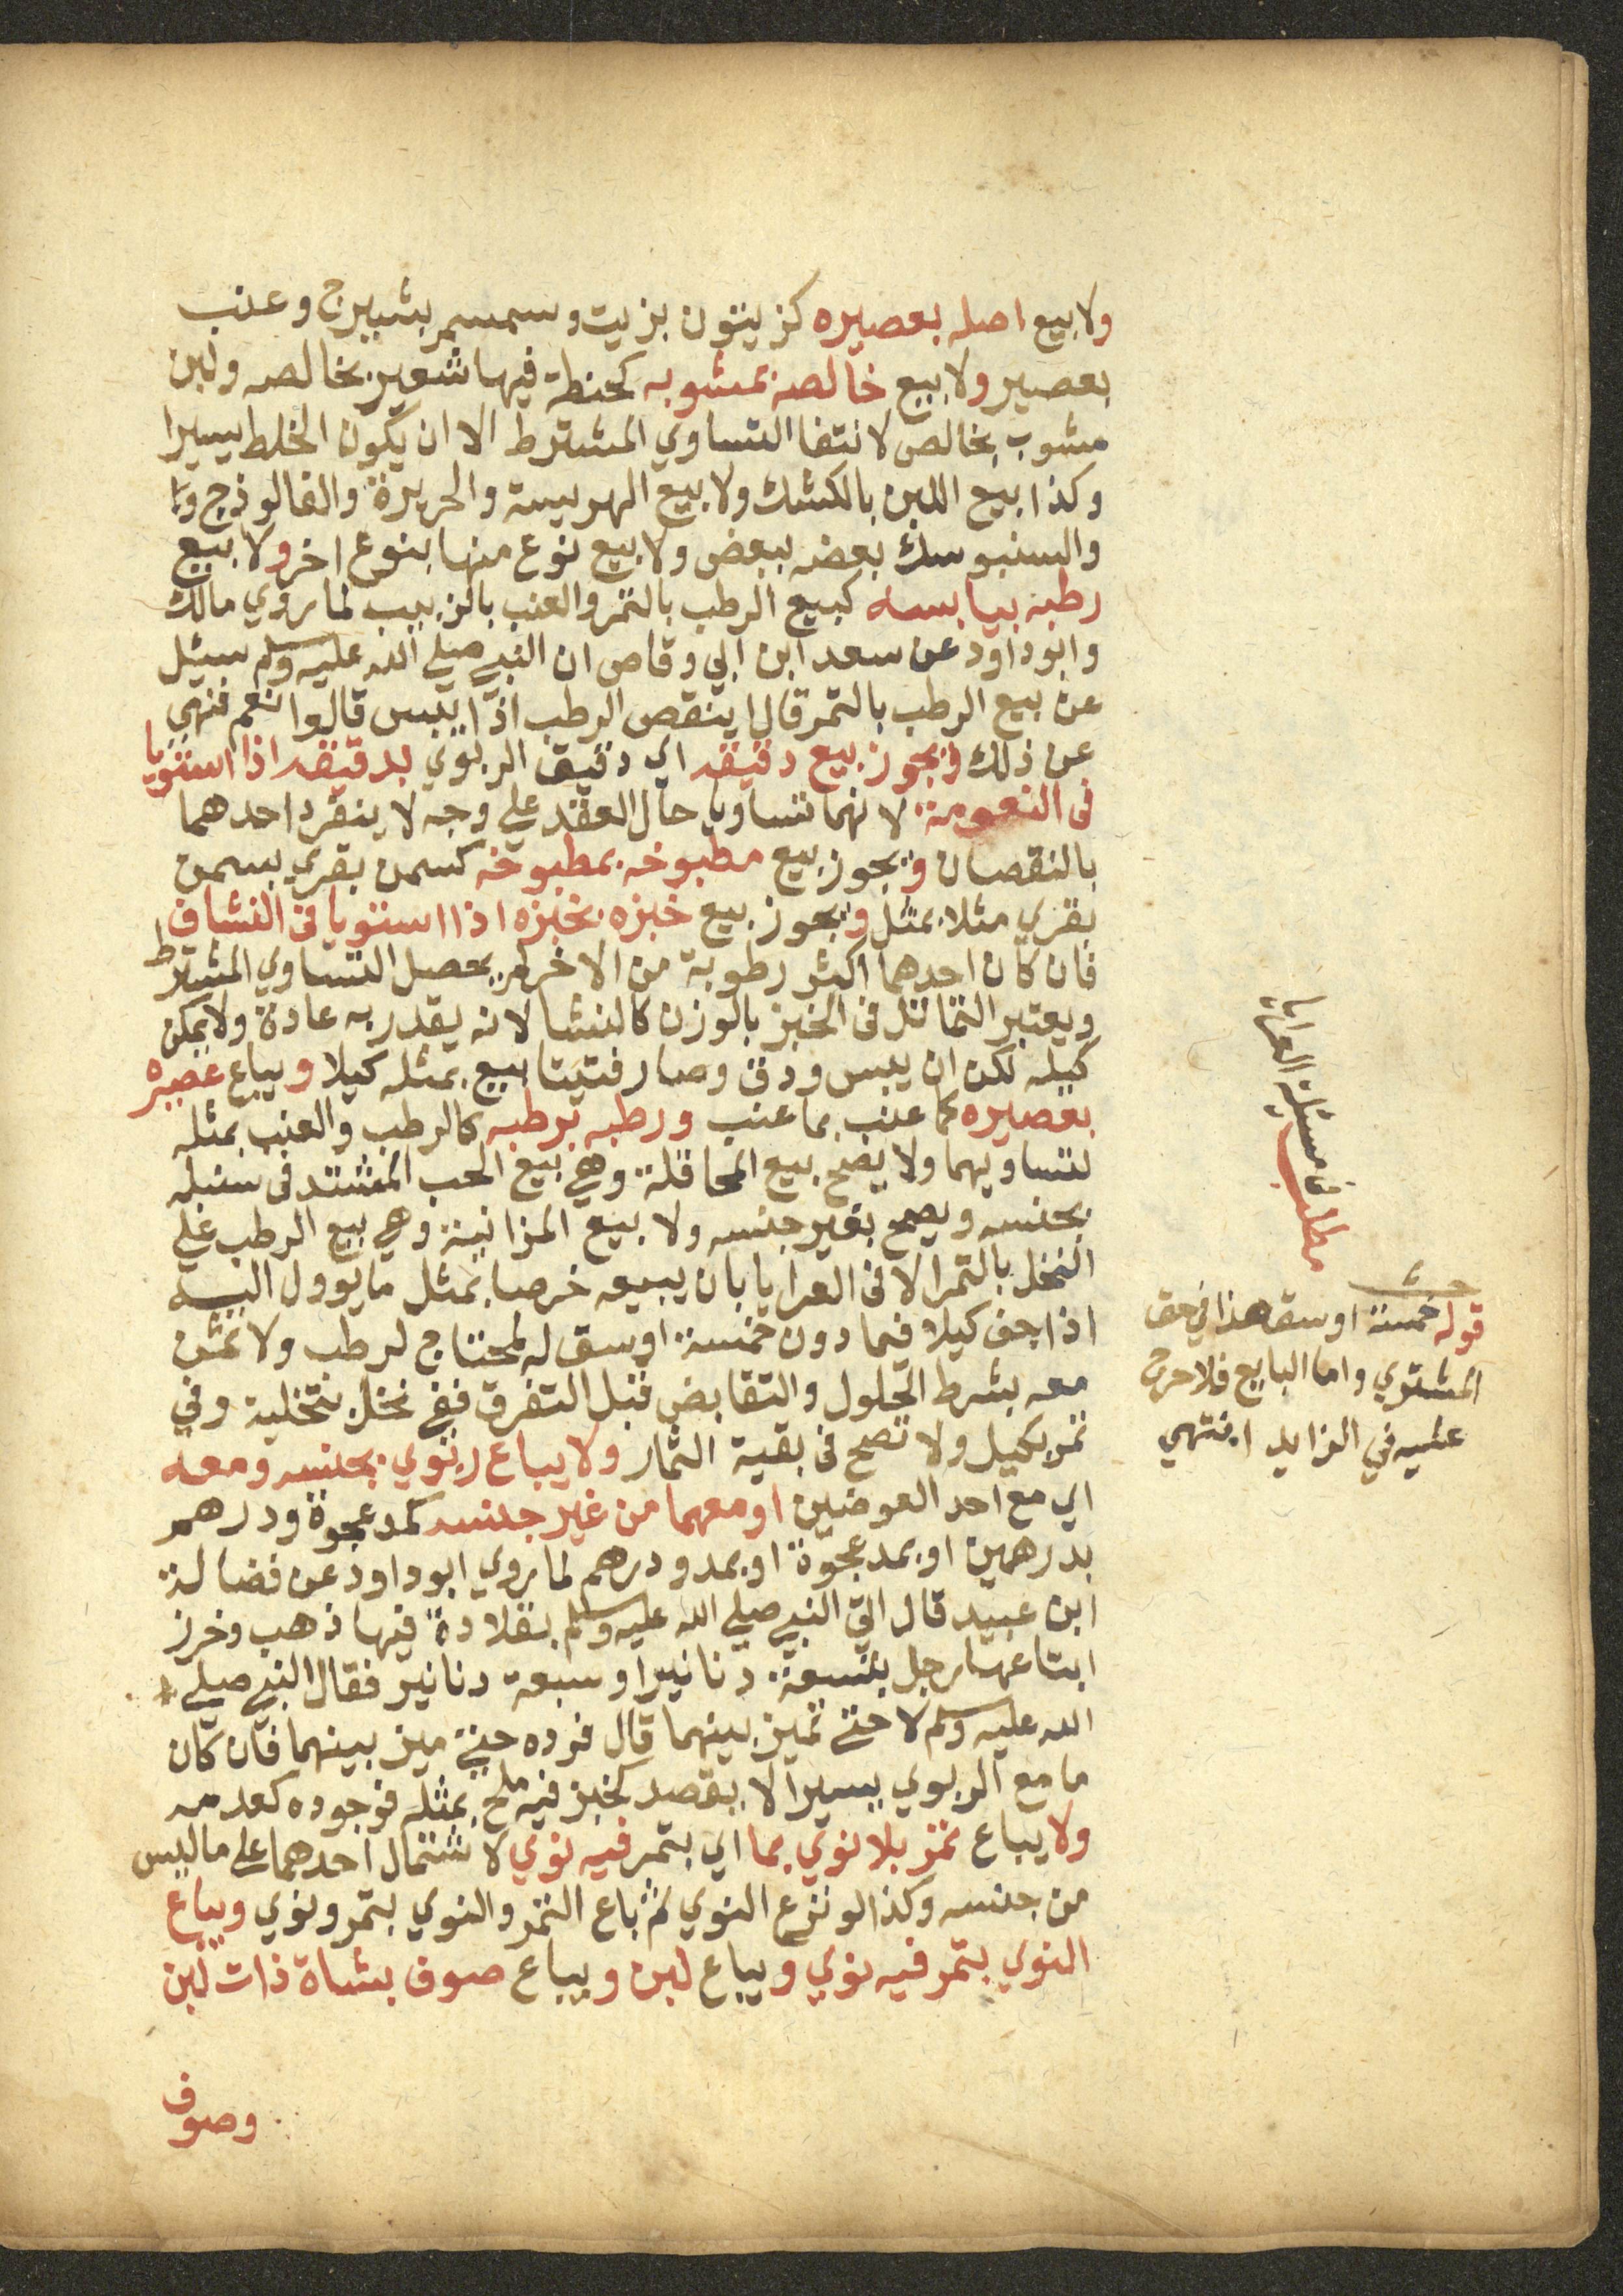 ولا بيع اصله بعصيره كزيتون بزيت وسمسم بشيرج وعنب
بعصير ولا بيع خالصه بمشوبه كحنطة فيها شعير بخالصه ولبن
مشوب بخالص لانتفا التساوي المشترط الا ان يكون الخلط يسيرا
وكذا بيع اللبن بالكشك ولا بيع الهريسة والحريرة والفالوذج
والسنبوسك بعضه ببعض ولا بيع نوع منها بنوع اخر ولا بيع
رطبه بيابسه كبيع الرطب بالتمر والعنب بالزبيب لما روي مالك
وابو داود عن سعد ابن ابي وقاص ان النبي صلي الله عليه وسلم سئل
عن بيع الرطب بالتمر قال اينقص الرطب اذا يبس قالوا نعم فنهي
عن ذلك ويجوز بيع دقيقه اي دقيق الربوي بدقيقه اذا استويا
في النعومة لانهما تساويا حال العقد علي وجه لا ينفرد احدهما
بالنقصان ويجوز بيع مطبوخه بمطبوخه كسمن بقري بسمن
بقري مثلا بمثل ويجوز بيع خبزه بخبزه اذا استويا في النشاف
فان كان احدهما اكثر رطوبة من الاخر لم يحصل التساوي المشترط
ويعتبر التماثل في الخبز بالوزن كالنشا لانه يقدر به عادة ولا يمكن
كيله لكن ان يبس ودق وصار فتيتا بيع بمثله كيلا ويباع عصيره
بعصيره كما عنب بما عنب ورطبه برطبه كالرطب والعنب بمثله
لتساويهما ولا يصح بيع المحاقلة وهي بيع الحب المشتد في سنبله
بجنسه ويصح بغير جنسه ولا بيع المزابنة وهي بيع الرطب علي
النخل بالتمر الا في العرايا بان يبيعه خرصا بمثل ما يوول اليه
اذا جف كيلا فيما دون خمسة اوسق لمحتاج لرطب ولا ثمن
معه بشرط الحلول والتقابض قبل التفرق ففي نخل بتخلية وفي
تمر بكيل ولا تصح في بقية الثمار ولا يباع ربوي بجنسه ومعه
اي مع احد العوضين او معهما من غير جنسه كمد عجوة ودرهم
بدرهمين او بمد عجوة او بمد ودرهم لما روي ابو داود عن فضالة
ابن عبيد قال اتي النبي صلي الله عليه وسلم بقلادة فيها ذهب وخرز
ابتاعها رجل بتسعة دنانير او سبعة دنانير فقال النبي صلي
الله عليه وسلم لا حتي تميز بينهما قال فرده حتي ميز بينهما فان كان
ما مع الربوي يسيرا لا يقصد كخبز فيه ملح بمثله فوجوده كعدمه
ولا يباع تمر بلا نوي بما اي بتمر فيه نوي لاشتمال احدهما علي ما ليس
من جنسه وكذا لو نزع النوي ثم باع التمر والنوي بتمر ونوي ويباع
النوي بتمر فيه نوي ويباع لبن ويباع صوف بشاة ذات لبن
وصوف
مطلب في مسئلة العرايا
قوله خمسة اوسق هذا في حق
المشتري واما البايع فلا حرج
عليه في الزايد انتهي